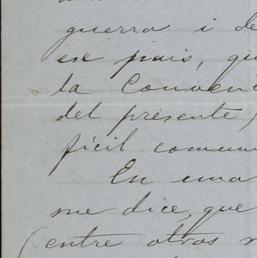 guerra i de
ese pais, qu
la Conven
del presente,
fícil comun
En una
me dice, que
(entre otras